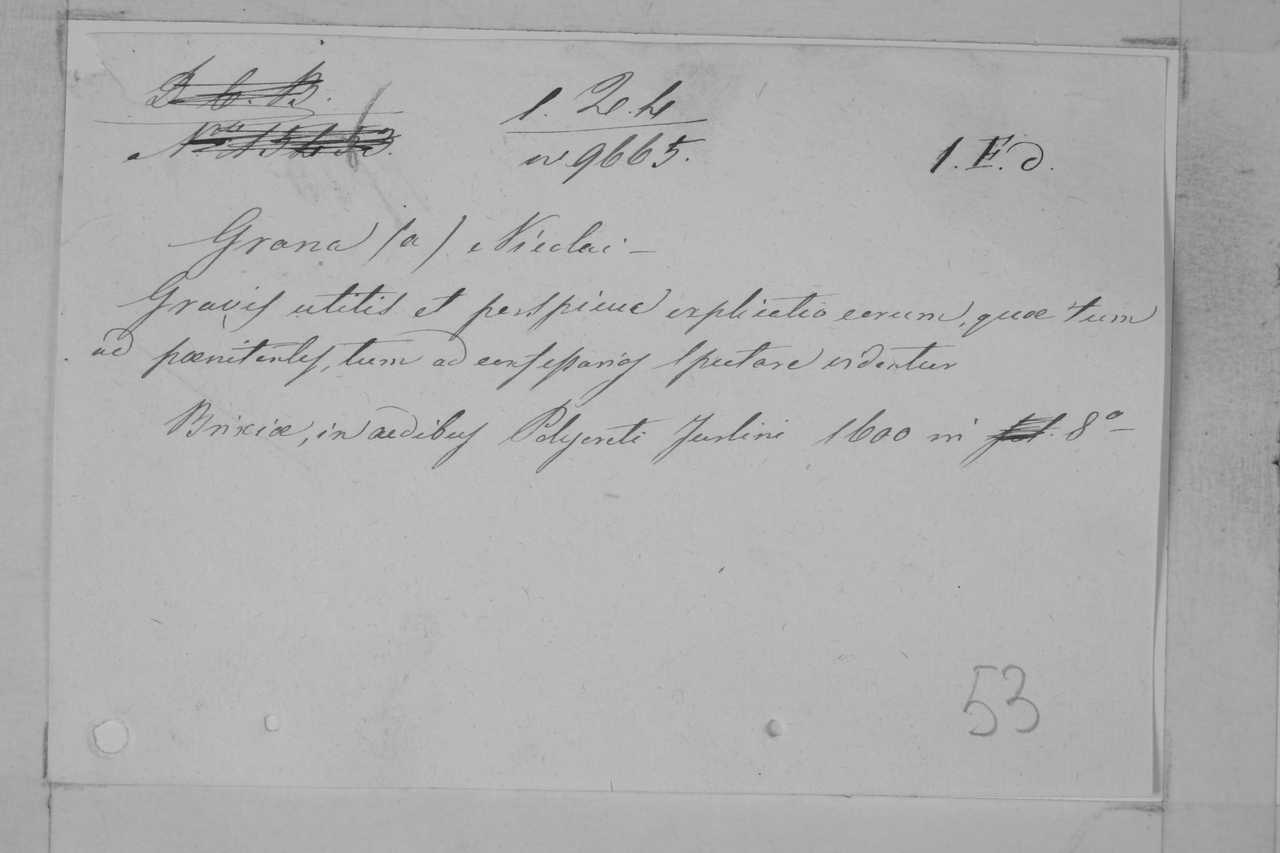 1. 2 h
n 9665.
1. E. d.
Grana (a) Nicolai –
Gravis utilis et perspicua explicatio eorum, quæ tum
ad pœnitentes, tum ad confessarios spectare videntur
Brixiæ, in ædibus Polycreti Turlini 1600 in 8º
53